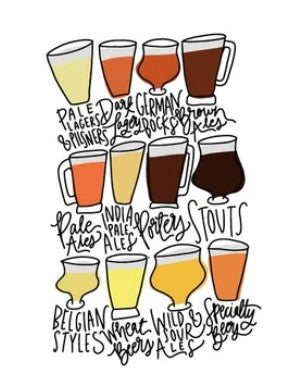 PALE LAGERS & PILSNERS
Dark Lagers
GERMAN BOCKS
& Brown Ales
Pale Ales
INDIA PALE ALES
Porters
STOUTS
BELGIAN STYLES
Wheat Beers
WILD & SOUR ALES
Specialty Beers